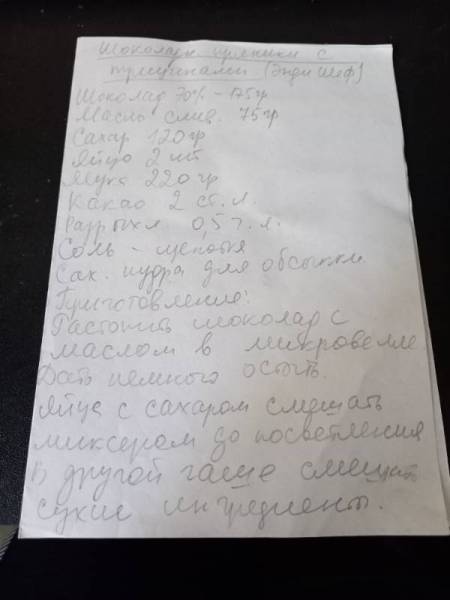 Шоколадн пряники с
трещинами (Энди Шеф)
Шоколад 70% - 175гр
Масло слив. 75гр
Сахар 120гр
Яйцо 2 шт
Мука 220гр
Какао 2 ст. л.
Разрыхл 0,5 ч. л.
Соль - щепотка
Сах. пудра для обсыпки
Приготовление:
Растопить шоколад с
маслом в микровелле
Дать немного остыть.
Яйца с сахаром смешать
миксером до посветления
В другой чаше смешать
сухие ингредиенты.